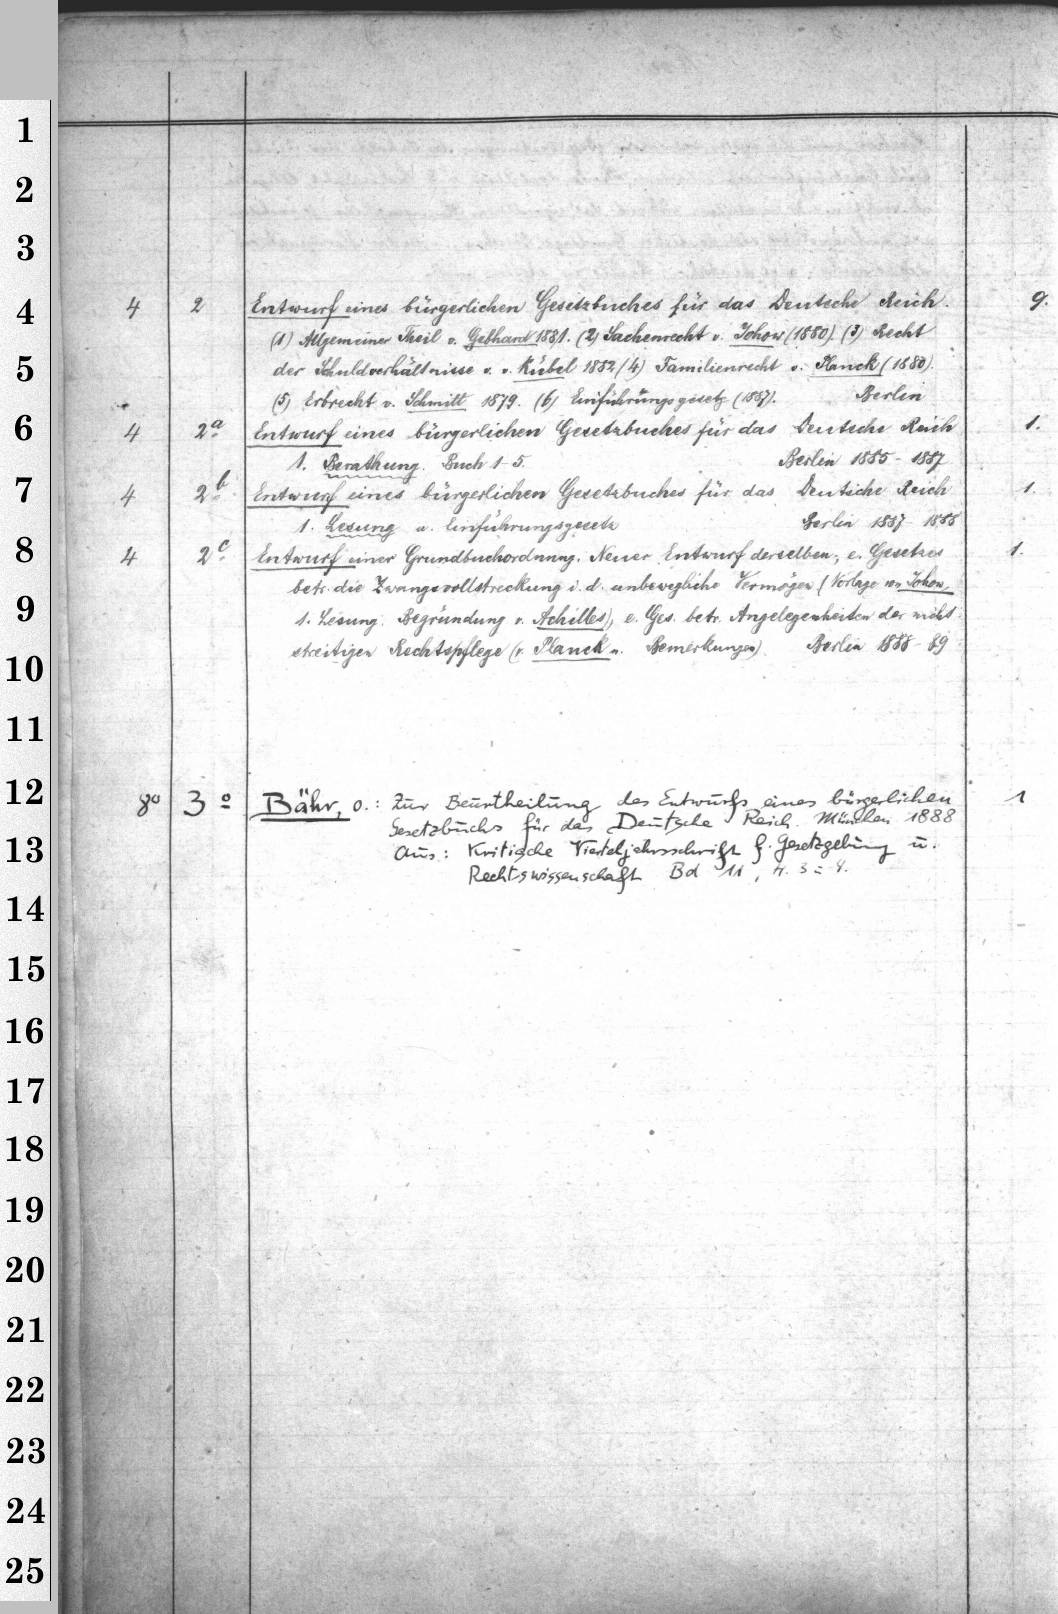 1
2
3
4 4 2 Entwurf eines bürgerlichen Gesetzbuches für das Deutsche Reich. 9.
(1) Allgemeiner Theil v. Gebhard 1881. (2) Sachenrecht v. Johow (1880). (3) Recht
5 der Schuldverhältnisse v. v. Kübel 1882 (4) Familienrecht v. Planck (1880).
(5) Erbrecht v. Schmitt 1879. (6) Einführungsgesetz (1887). Berlin
6 4 2a Entwurf eines bürgerlichen Gesetzbuches für das Deutsche Reich 1.
1. Berathung. Buch 1-5. Berlin 1885-1887
7 4 2b Entwurf eines bürgerlichen Gesetzbuches für das Deutsche Reich 1.
1. Lesung u. Einführungsgesetz Berlin 1887-1888
8 4 2c Entwurf einer Grundbuchordnung. Neuer Entwurf derselben, e. Gesetzes 1.
betr. die Zwangsvollstreckung i. d. unbewegliche Vermögen (Vorlage von Johow,
9 1. Lesung. Begründung v. Achilles), e. Ges. betr. Angelegenheiten der nicht
10 streitigen Rechtspflege (v. Planck u. Bemerkungen). Berlin 1888-89
11
12 8o 3o Bähr, O.: Zur Beurtheilung des Entwurfs eines bürgerlichen 1
Gesetzbuchs für das Deutsche Reich. München 1888
13 Aus: Kritische Vierteljahrsschrift f. Gesetzgebung u.
Rechtswissenschaft Bd 11, H. 3 = 4.
14
15
16
17
18
19
20
21
22
23
24
25